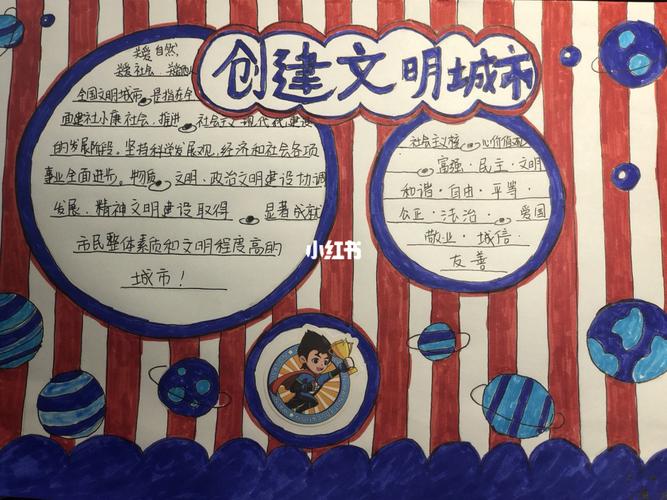 创建文明城市
关爱自然,
关爱社会、关爱
全国文明城市 是指在全
面建社小康社会、推进 社会主义现代化建设
的发展阶段。坚持科学发展观、经济和社会各项
事业全面进步。物质 文明、政治文明建设协调
发展、精神文明建设取得 显著成就
市民整体素质和文明程度高的
城市！
社会主义核 心价值观
富强·民主·文明
和谐·自由·平等·
公正·法治· 爱国
敬业·城信·
友善
小红书